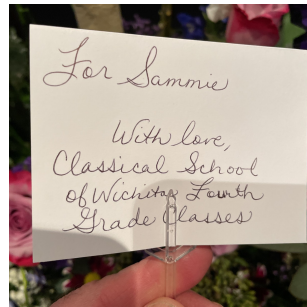 For Sammie
With love,
Classical School
of Wichita Fourth
Grade Classes